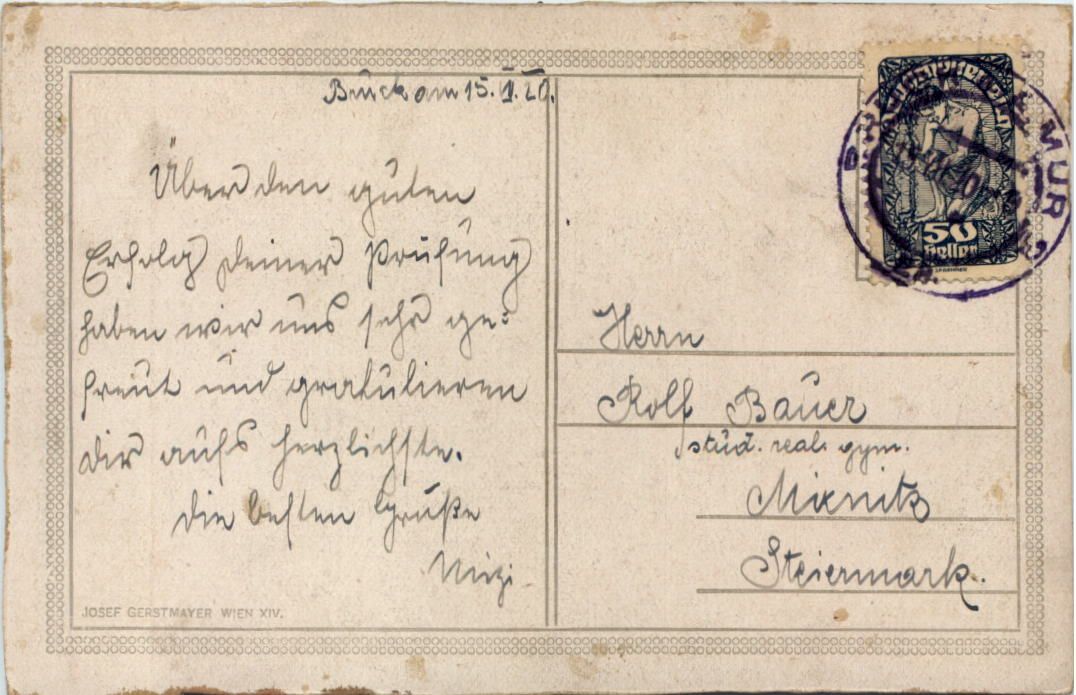 Bruck am 15. V. 20.
Über den guten
Erfolg deiner Prüfung
haben wir uns sehr ge=
freut und gratulieren
dir aufs herzlichste.
Die besten Grüße
Mizi
JOSEF GERSTMAYER WIEN XIV.
50
heller
MUR
Herrn
Rolf Bauer
stud. real. gym.
Mixnitz
Steiermark.